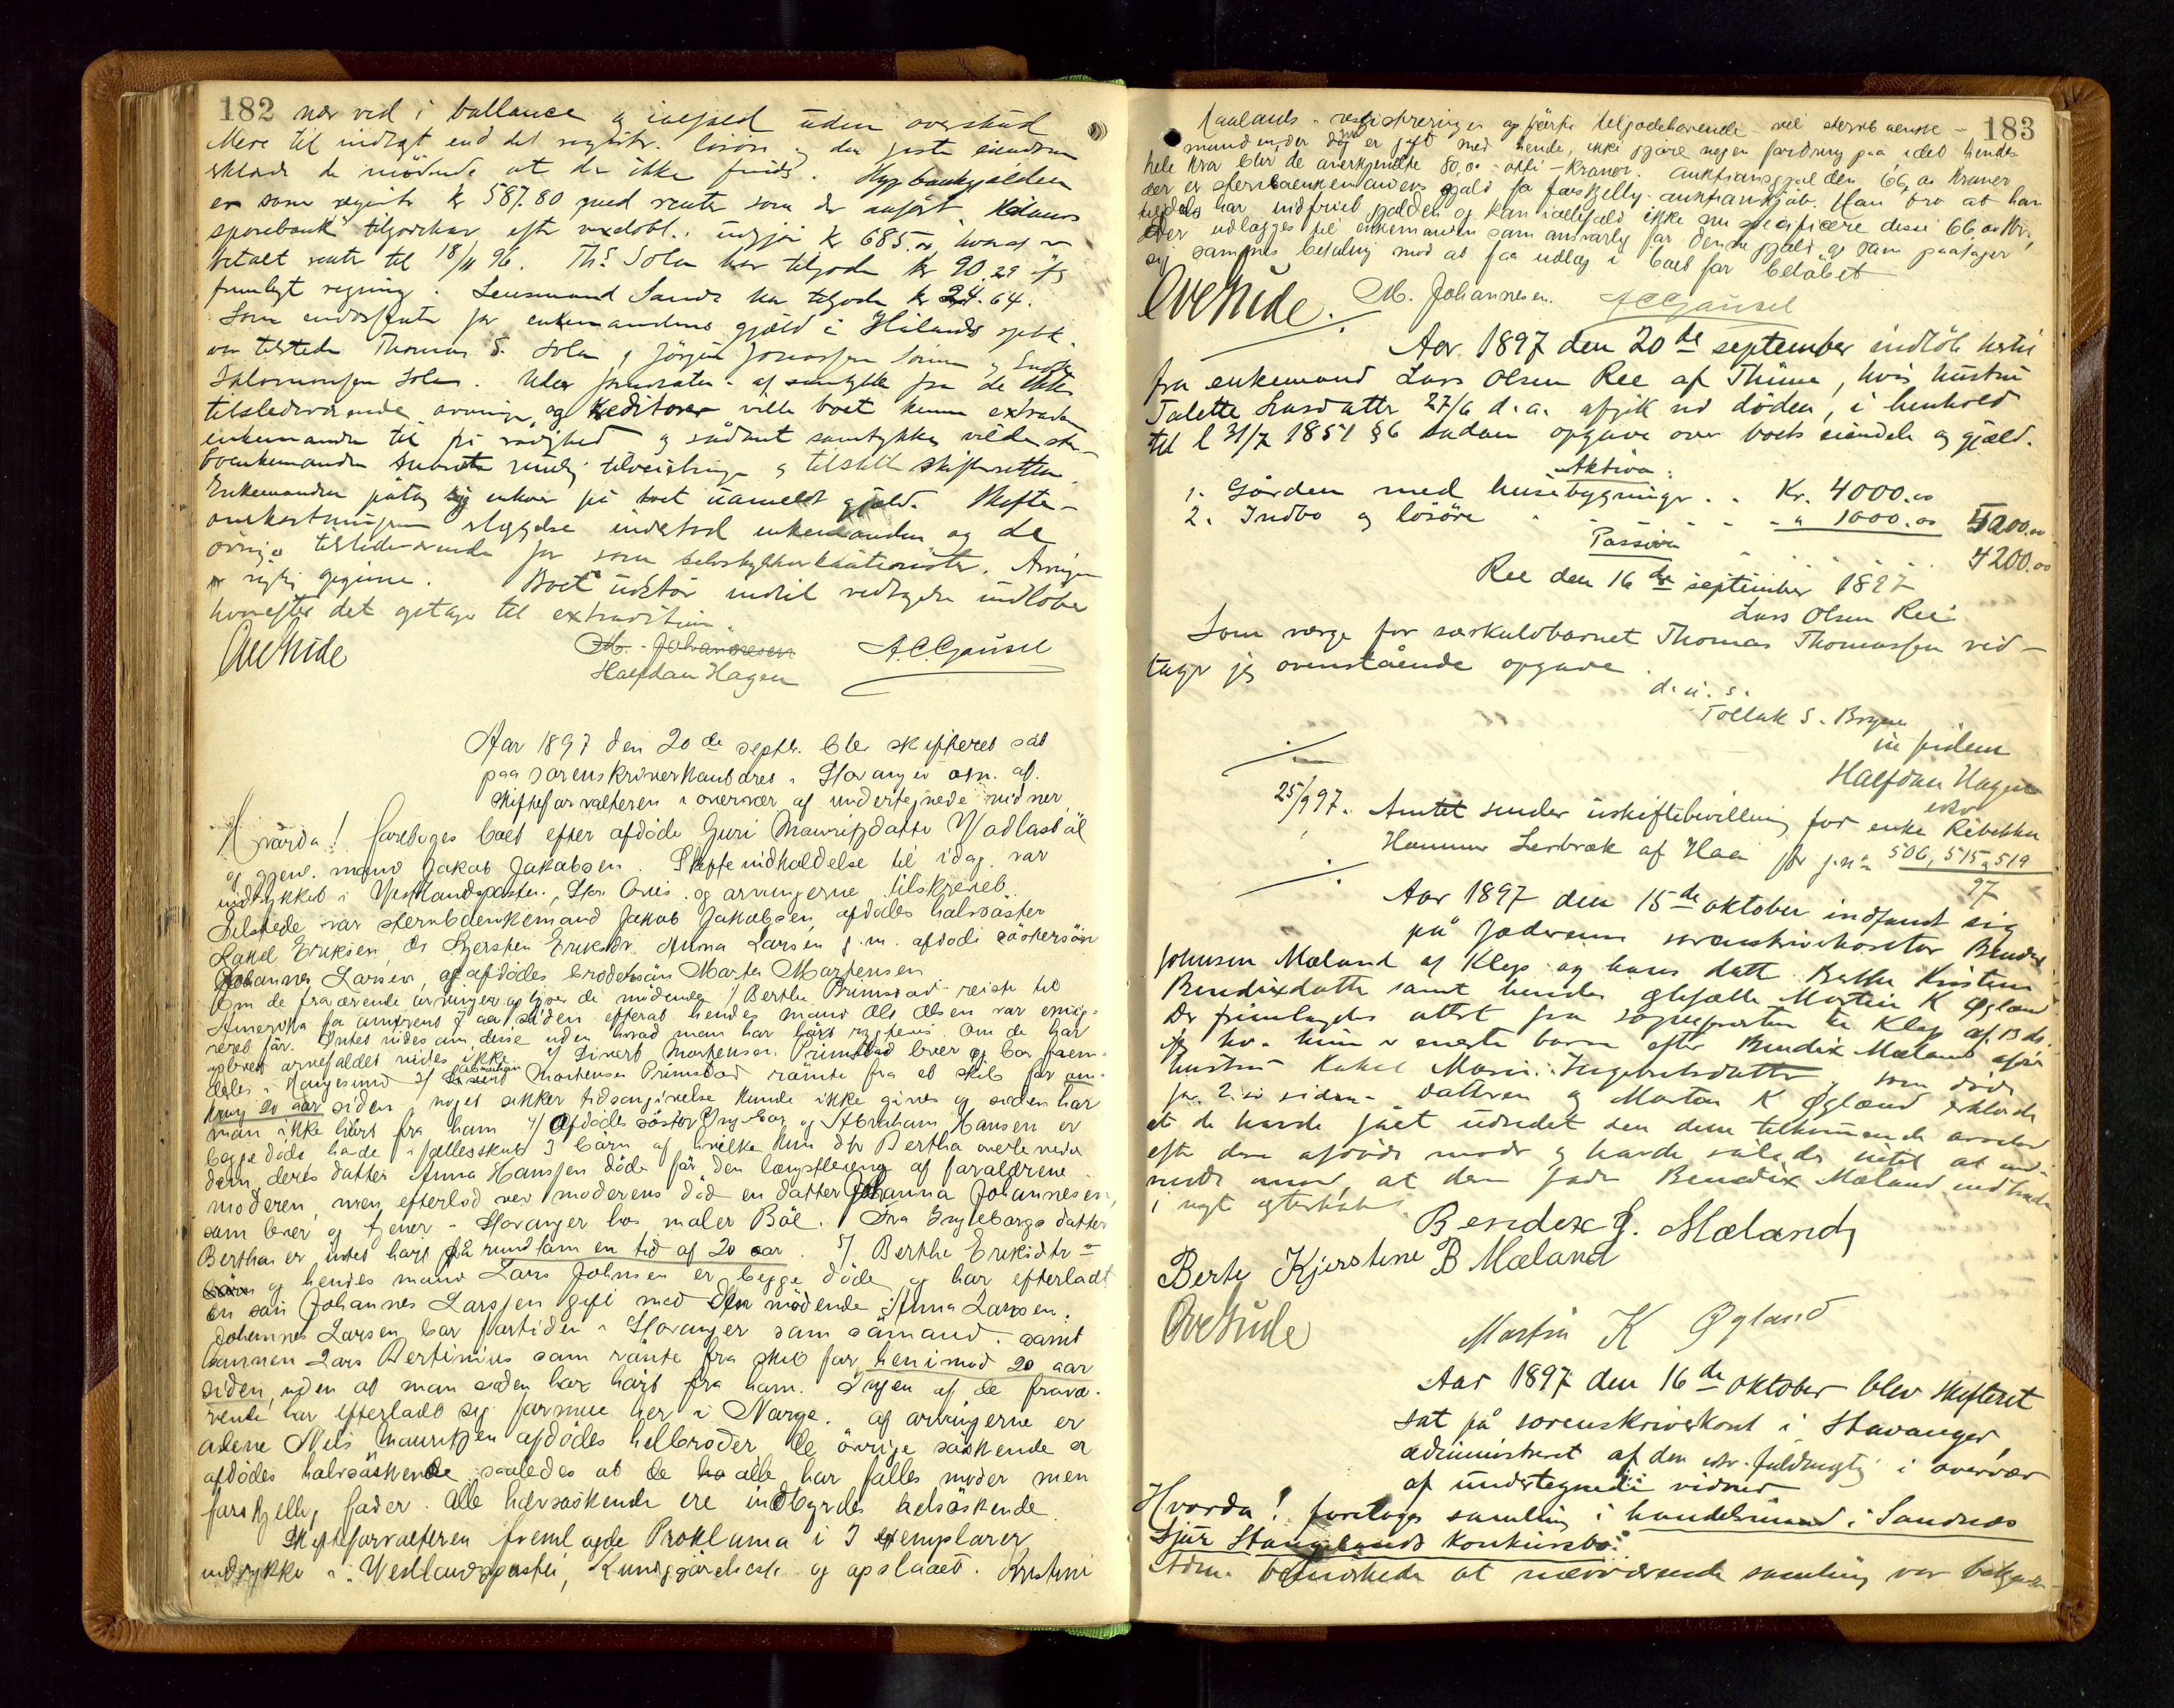 182 nær ved i ballance og ialfald uden overskud
Mere til indtægt end det registr. løsøre og den faste eiendom
erklærede de mødende at der ikke findes. Hyp bankgjælden
er som registr. kr 587.80 med renter som der anført. Hølands
sparebank tilgodehav. efter vexelobl. udgjør kr 685.00, hvoraf er
betalt rente til 18/11 96. Ths Sola har tilgode kr 90.29 ifg
fremlagt regning. Lensmand Sande har tilgode kr 24.64.
Som endossenter for enkemandens gjæld i Hølands spbk.
var tilstede Thomas S. Sola, Jørgen Jonassen Sømme og
Salomonsen Sola. Under forudsætn. af samtykke fra de ikke
tilstedeværende arvinger og kreditorer ville boet kunne extraderes
enkemanden til fri rådighed og sådant samtykke vilde
boenkemanden tilveiebringe og tilstille skifteretten.
Enkemanden påtog sig enhver på boet uanmeldt gjæld. Skifte-
omkostningernes erlæggelse indestod enkemanden og de
øvrige tilstedeværende for som selvskyldnerkautionister. Arvingerne
er rigtig opgivne. Boet udstår indtil vedtagelse indløber
hvorefter det optages til extradition.
Ove Hude M. Johannesen A.C. Gausel
Halfdan Hagen
Aar 1897 den 20de septbr. blev skifteret sat
paa sorenskriverkontoret i Stavanger adm. af
skifteforvalteren i overvær af undertegnede vidner
Hvorda! foretoges boet efter afdøde Guri Mauritzdatter Vadlasbøl
og gjenl. mand Jakob Jakobsen. Skifteindkaldelse til idag var
indrykket i Vestlandsposten, Stav. Avis og arvingerne tilskrevet.
Tilstede var stervboenkemand Jakob Jakobsen, afdødes halvsøster
Rakel Eriksen, do Kjersten Eriksdtr. Anna Larsen g.m. afdødes søstersøn
Johannes Larsen, og afdødes brodersøn Marten Martensen
Om de fraværende arvinger oplyser de mødende 1/ Berthe Primstad reiste til
Amerika for omtrent 7 aar siden efterat hendes mand Ole Olsen var emig-
reret før. Intet vides om disse uden hvad man har hørt rygtevis. Om de har
oplevet arvefaldet vides ikke. 2/ Sivert Mortensen Primstad lever og bor frem-
deles i Haugesund 3/ Mortensen Primstad rømte fra et skib for om-
kring 20 aar siden, noget sikker tidsangivelse kunde ikke gives og siden har
man ikke hørt fra ham 4/ Afdødes søster Ingeborg og Abraham Hansen er
begge døde havde i fællesskab 3 børn af hvilke kun dtr Bertha overlevede
dem, deres datter Anna Hanssen døde før den længstlevende af forældrene
moderen, men efterlod ved moderens død en datter Johanna Johannesen,
som lever og tjener i Stavanger hos maler Bøe. Fra Ingeborgs datter
Bertha er intet hørt på rundt om en tid af 20 aar. 5/ Berthe Eriksdtr
og hendes mand Lars Johnsen er begge døde og har efterladt
en søn Johannes Larsen gift med den mødende Anna Larsen.
Johannes Larsen bor fortiden i Stavanger som sømand. samt
sønnen Lars Bertinius som rømte fra skib for henimod 20 aar
siden, uden at man siden har hørt fra ham. Ingen af de fravæ-
rende har efterladt sig formue her i Norge. af arvingerne er
alene Nels Mauritzen afdødes helbroder. De øvrige søskende er
afdødes halvsøskende saaledes at de alle har fælles moder men
forskjellig fader. Alle halvsøskende ere indbyrdes helsøskende.
Skifteforvalteren fremlagde Proklama i 3 exemplarer
indrykket i Vestlandsposten, Kundgjørelsest. og opslaaet. Kristine
183
Haalands i registreringen opførte tilgodehavende vil stervboenke-
manden, der dog er gift med hende, ikke gjøre nogen fordring paa i det hendes
hele krav blev de anerkjendte 80,00 - otti - kroner. Auktionsgjælden 66,00 kroner
der er stervboenkemandens gjæld for forskjellig auktionskjøb. Han tror at han
tildels har indfriet gjælden og kan ialfald ikke nu specificere disse 66,00 kr.,
der udlægges til enkemanden som ansvarlig for denne gjæld og som paatager
sig sammes betaling mod at faa udlæg i boet for beløbet
Ove Hude. M. Johannesen. A C Gausel
Aar 1897 den 20de september indløb hertil
fra enkemand Lars Olsen Ree af Thime, hvis hustru
Talette Larsdatter 27/6 d.a. afgik ved døden, i henhold
til l 31/7 1851 §6 sådan opgave over boets eiendele og gjæld.
Aktiva:
1. Gården med husebygninger . . Kr. 4000.00
2. Indbo og løsøre . . . . " 1000.00 5000.00
Passiva . . . 4200.00
Ree den 16de september 1897
Lars Olsen Ree
Som værge for særkuldbarnet Thomas Thomassen ved-
tager jeg ovenstående opgave.
d. u. s.
Tollak S. Bryne
in fidem
Halfdan Hagen
25/9 97. Amtet sender uskiftebevilling for enke Rebekka
Hammer Lerbræk af Haa for j.nr 506, 515, 519
97
Aar 1897 den 15de oktober indfandt sig
på Jæderens sorenskriverkontor Bendix
Johnsen Mæland af Klep og hans datter Berthe Kristine
Bendixdatter samt hendes ægtefælle Martin K Øglænd
Der fremlagdes attest fra sognepresten til Klep af 13 ds.
for hv. hun er eneste barn efter Bendix Mælands afdøde
hustru Rakel Marie Ingebretsdatter, som døde
for 2 år siden. Datteren og Martin K Øglænd erklærede
at de havde fået udredet den dem tilkommende arvelod
efter den afdøde moder og havde således intet at ind-
vende imod, at den fader Bendix Mæland indtræder
i nyt ægteskab.
Bendix J. Mæland,
Berte Kjerstine B Mæland
Ove Hude
Martin K Øgland
Aar 1897 den 16de oktober blev skifteret
sat på sorenskriverkont i Stavanger,
administreret af den edsv. fuldmægtig i overvær
af undertegnede vidner
Hvorda! foretoges samling i handelsmand i Sandnæs
Sjur Stangelands konkursbo.
Adm. bemærkede at nærværende samling var